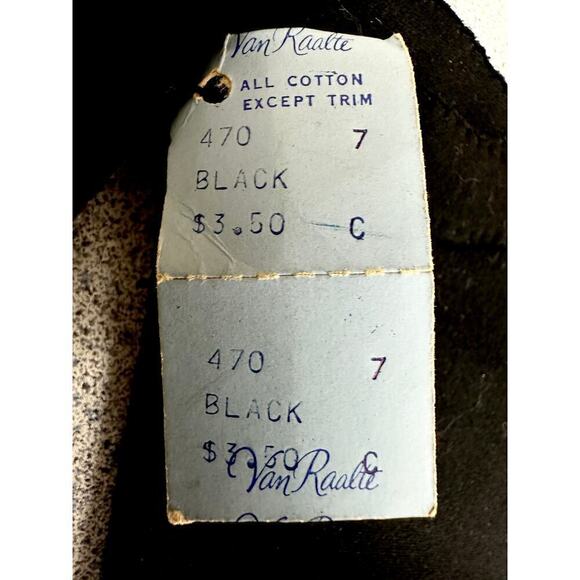 Van Raalte
ALL COTTON
EXCEPT TRIM
470 7
BLACK
$3.50 C
470 7
BLACK
$3.50 C
Van Raalte